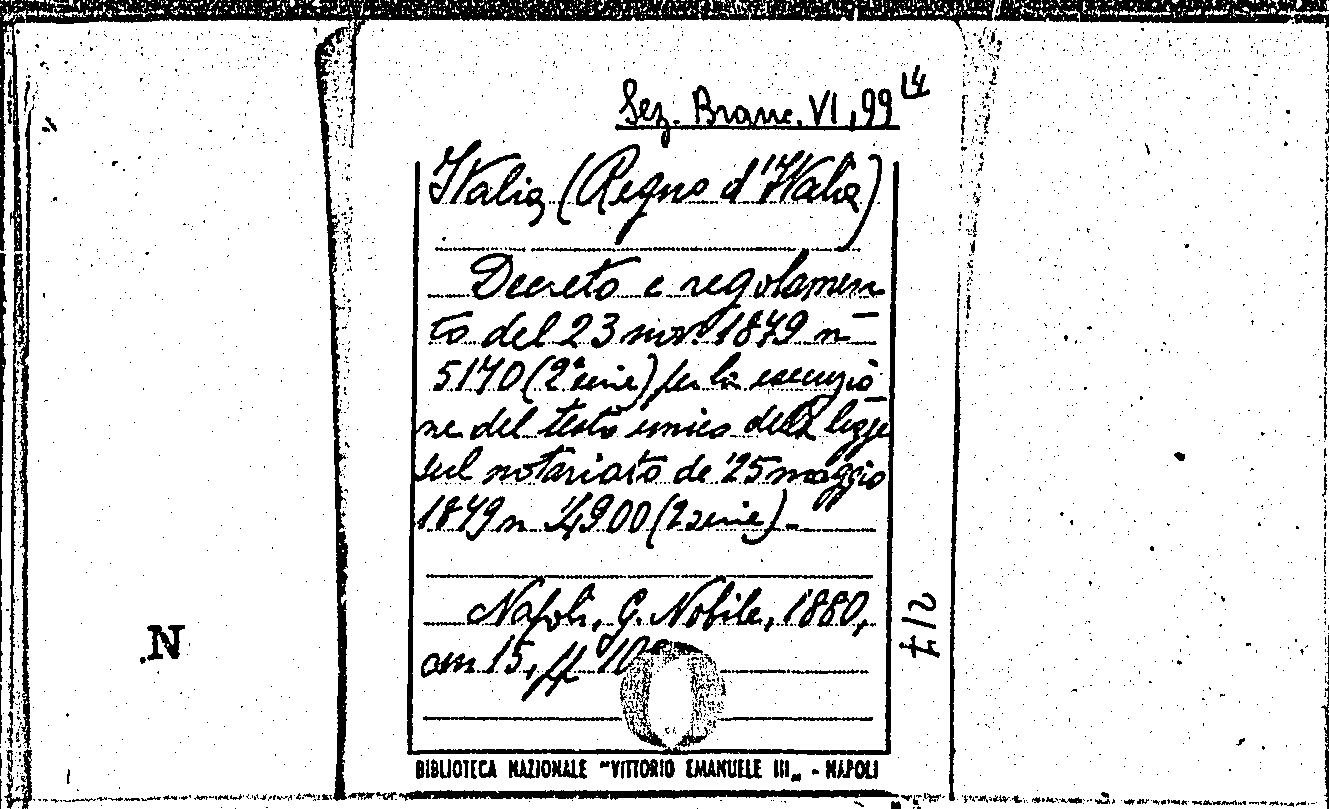 Sez. Branc. VI, 99 14
Italia (Regno d'Italia)
Decreto e regolamen
to del 23 nov. 1879 n
5170 (2ª serie) per la esecuzio
ne del testo unico della legge
sul notariato de '25 maggio
1879 n 4900 (2 serie).-
Napoli, G. Nobile, 1880,
cm 15, pp
N
BIBLIOTECA NAZIONALE "VITTORIO EMANUELE III„ - NAPOLI